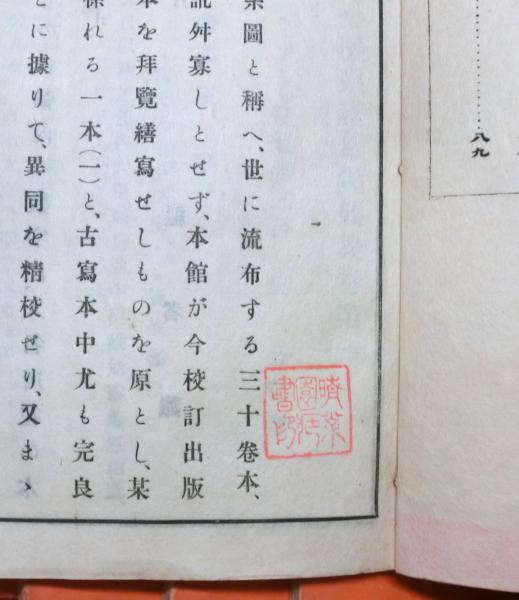 圖と稱へ、世に流布する三十卷本、
訛舛寡しとせず、本館が今校訂出版
本を拜覽繕寫せしものを原とし、某
れる一本(一)と、古寫本中尤も完良
に據りて、異同を精校せり、又まゝ
八九